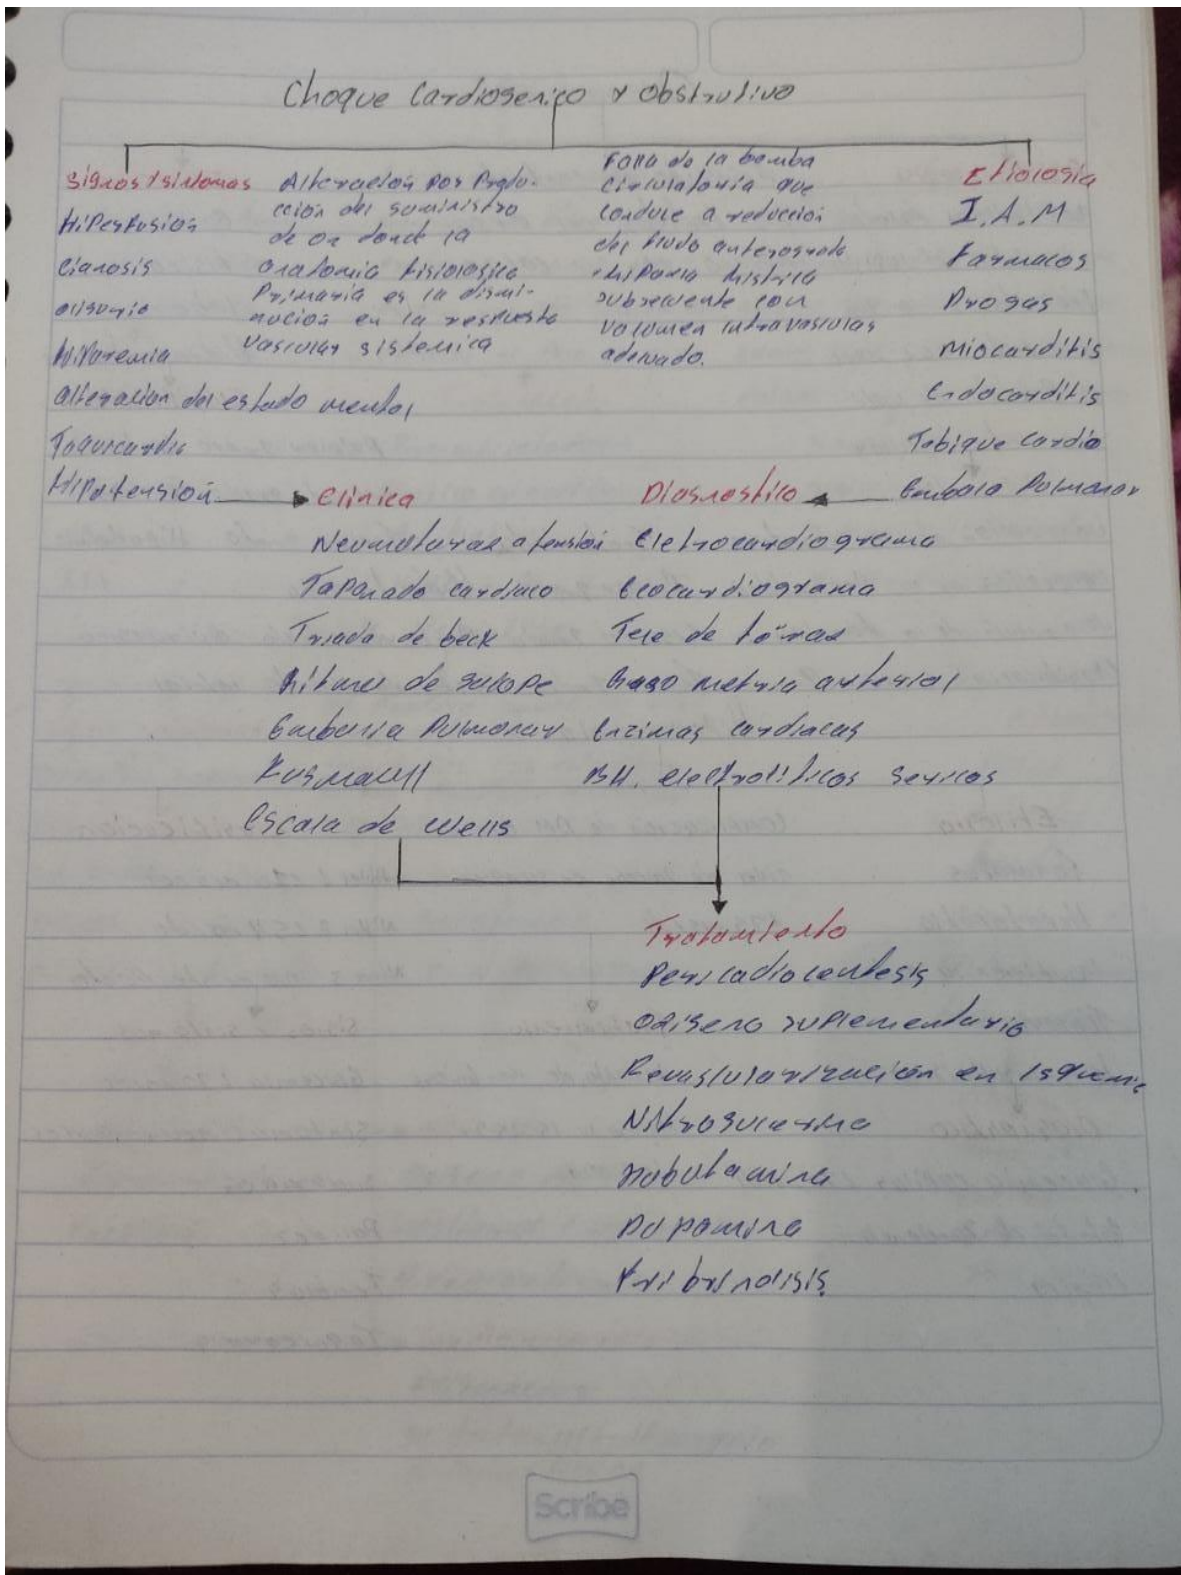 Choque Cardiogenico y obstrutivo
Signos y sintomas
Hiperfusion
Cianosis
oliguria
Hiporemia
alteracion del estado mental
Taquicardia
Hipotensión
Alteracion por Produ-
cción del suministro
de O2 donde la
anatomia fisiologica
Primaria es la dismi-
nucion en la respuesta
Vascular sistemica
Falla de la bomba
circulatoria que
conduce a reduccion
del fludo anterogrado
e hipoxia
subsecuente con
volumen intravascular
adecuado.
Etiologia
I.A.M
Farmacos
Drogas
Miocarditis
Endocarditis
Tabique cardio
Embolo Pulmonar
Clinica
Neumotorax a tensión
Taponado cardiaco
Triada de beck
Ritmo de galope
Embolia Pulmonar
Kusmaull
Escala de Wells
Diagnostico
Eletrocardiograma
Ecocardiograma
Tele de tórax
Gasometria arterial
Enzimas cardiacas
BH. electroliticos sericos
Tratamiento
Pericadiocentesis
Oxigeno suplementario
Revascularización en isquemia
Nitroglicerina
Dobutamina
Dopamina
Fribrinolisis.
Scribe